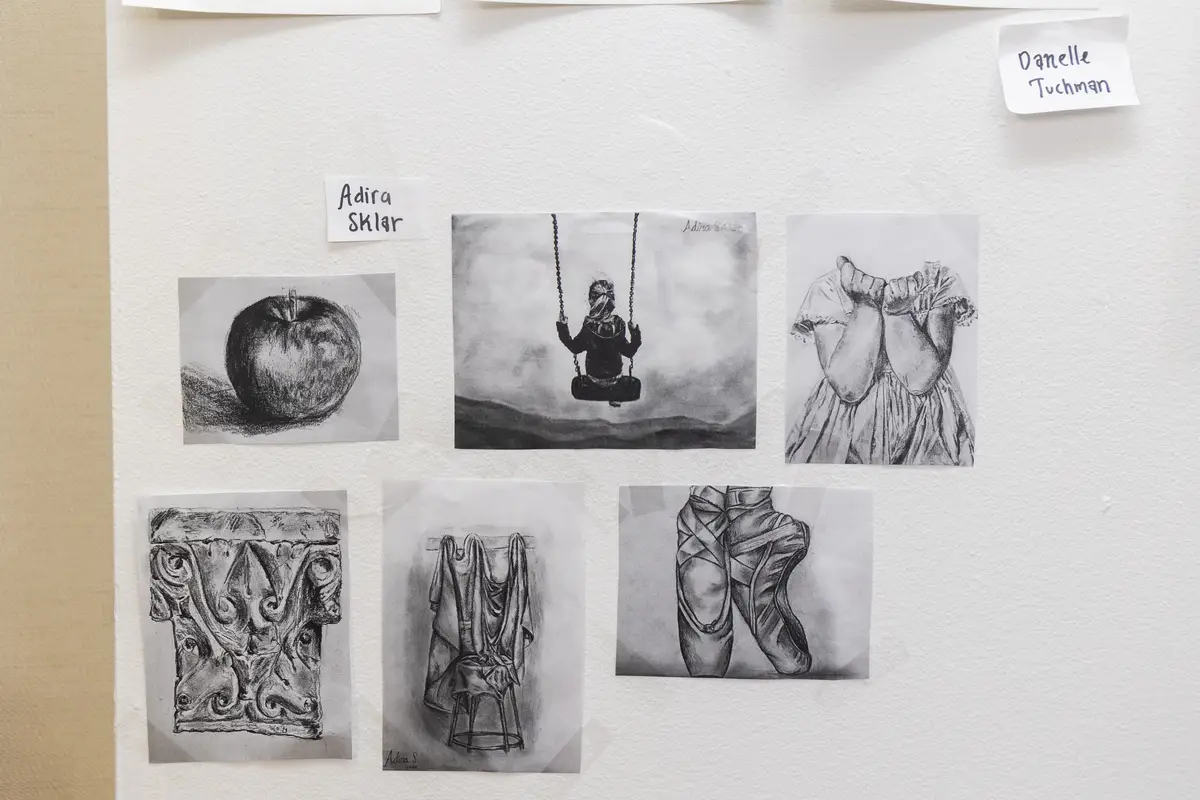 Danelle
Tuchman
Adira
Sklar
Adira
Adira S.